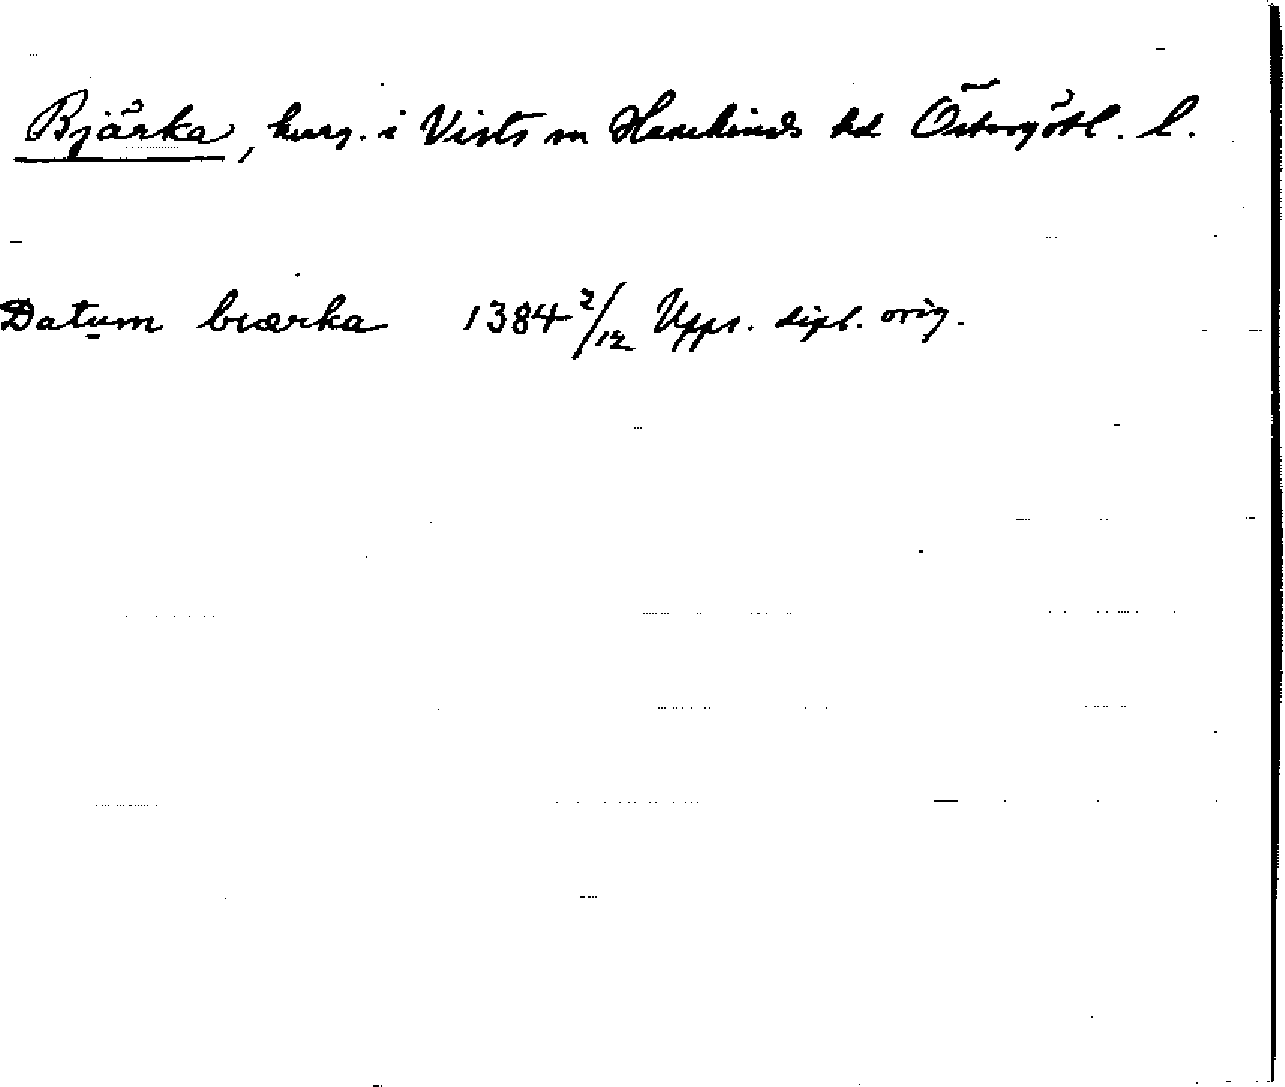 Bjärka, herrg. i Vists sn Hanekinds hd Östergötl. l.
Datum biærka 1384 2/12 Upps. dipl. orig.